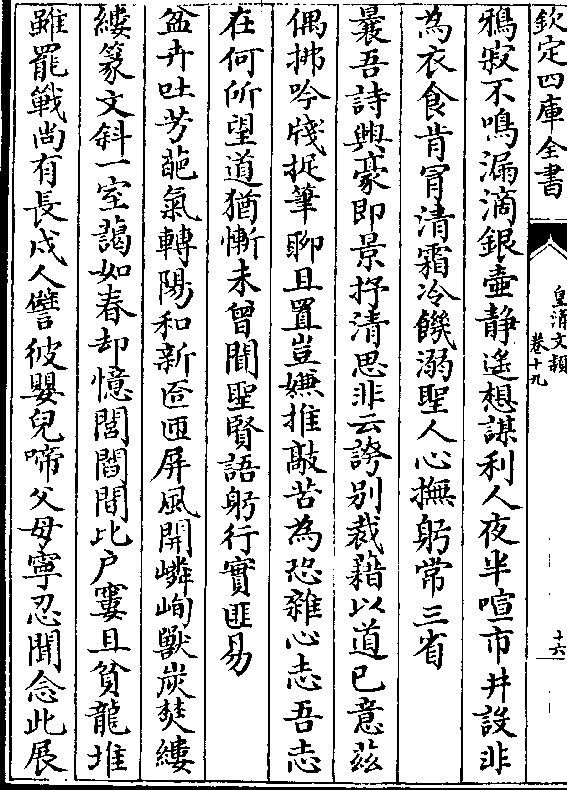 欽定四庫全書
皇清文穎
卷十九
十六
鴉寂不鳴漏滴銀壺靜遙想謀利人夜半喧市井設非
為衣食肯冐清霜冷饑溺聖人心撫躬常三省
曩吾詩興豪即景抒清思非云誇别裁藉以道已意兹
偶拂吟牋捉筆聊且置豈嫌推敲苦為恐雜心志吾志
在何所望道猶慚未曾聞聖賢語躬行實匪易
盆卉吐芳葩氣轉陽和新匼匝屏風開嶙峋獸炭焚縷
縷篆文斜一室藹如春却憶閭閻間比户窶且貧龍堆
雖罷戰尚有長戍人譬彼嬰兒啼父母寧忍聞念此展